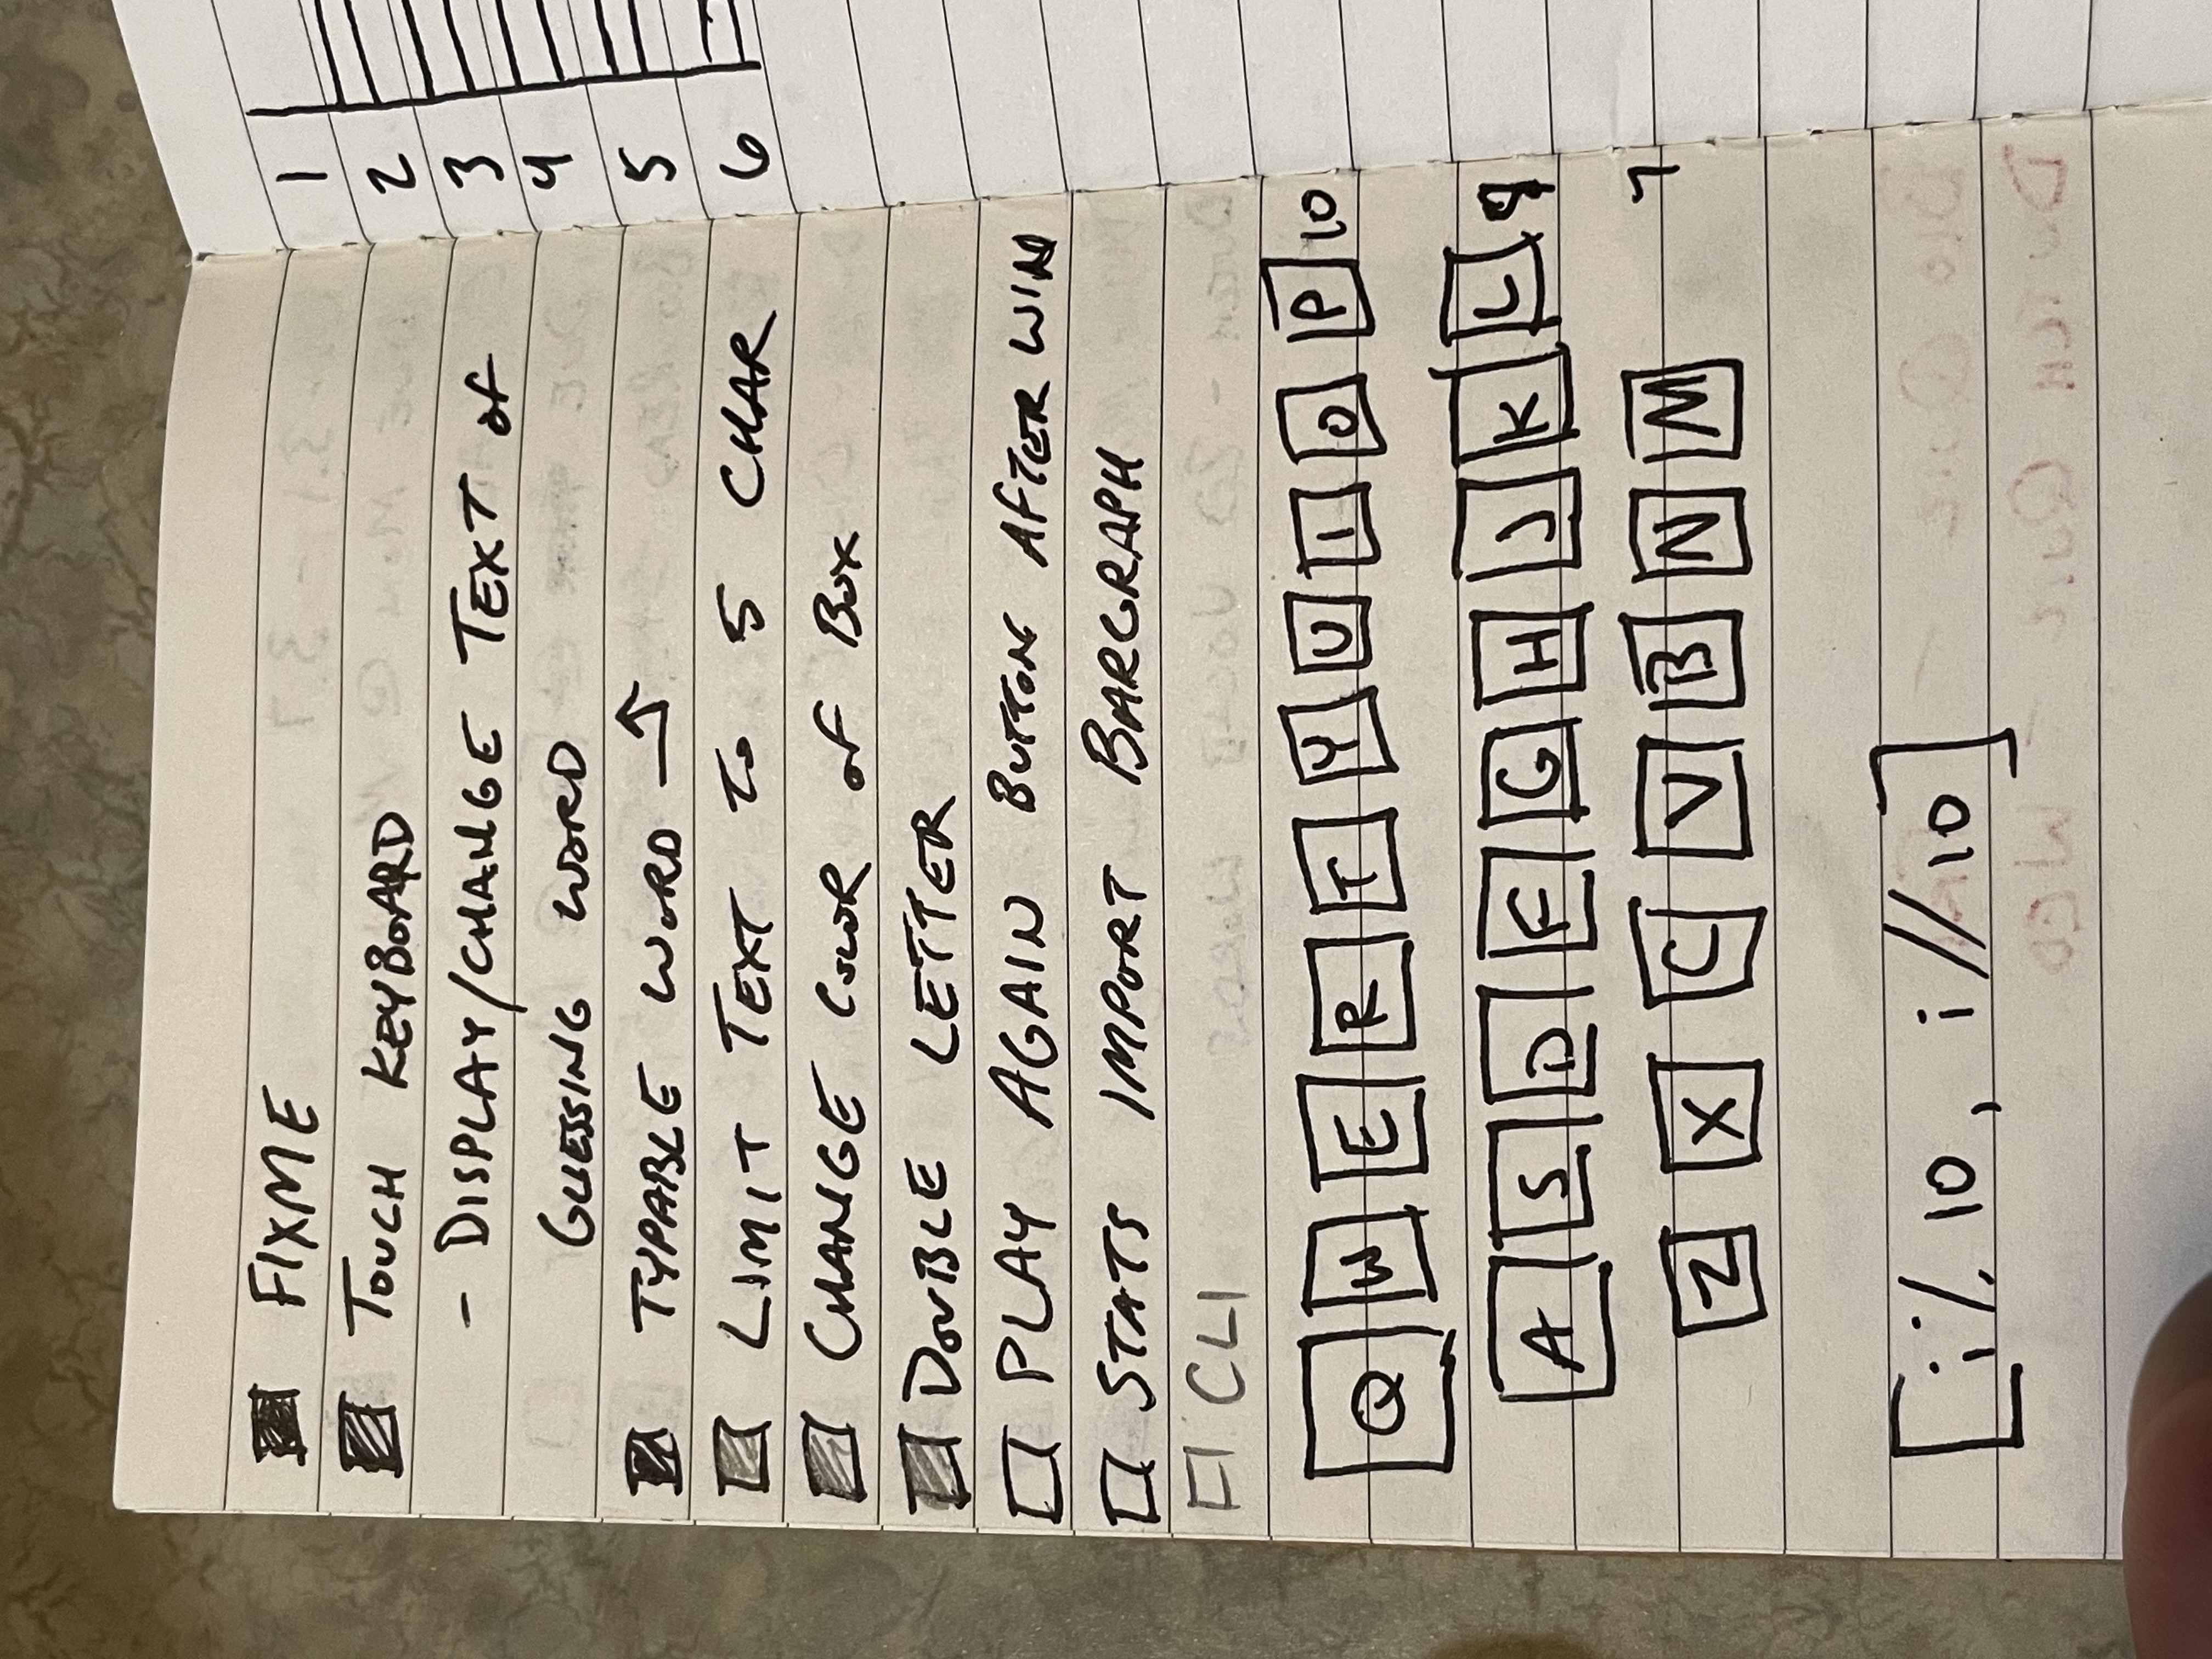 FIXME
TOUCH KEYBOARD
- DISPLAY/CHANGE TEXT of
GUESSING WORD
TYPABLE WORD
LIMIT TEXT TO 5 CHAR
CHANGE COLOR of BOX
DOUBLE LETTER
PLAY AGAIN BUTTON AFTER WIN
STATS IMPORT BARGRAPH
CLI
Q W E R T Y U I O P 10
A S D F G H J K L 9
Z X C V B N M 7
[i % 10, i // 10]
1
2
3
4
5
6